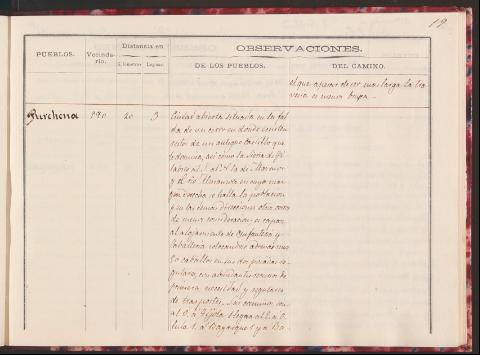 19.
OBSERVACIONES.
Distancia en
PUEBLOS. Vecindario.
Kilómetros Leguas.
DE LOS PUEBLOS. DEL CAMINO.
el que apesar de ser mas larga la travesia es menos
Purchena 20 3 Ciudad abierta situada en la falda
de un cerro en donde
de un antiguo Castillo que
la domina, asi como la Sierra de Filabres
al S. al
y el rio Almanzora en cuya margen
derecha se halla la poblacion
y en las demas direcciones otros cerros
de menos consideracion: es capaz
al alojamiento de Infanteria y
Caballeria colocandose ademas unos
20 caballos en sus dos posadas regulares,
con abundantes recursos de
primera necesidad y regulares
de trasportes. Los caminos son
al O. á Tíjola al E. á Olula
1, á Bayarque 1 y á Ba-